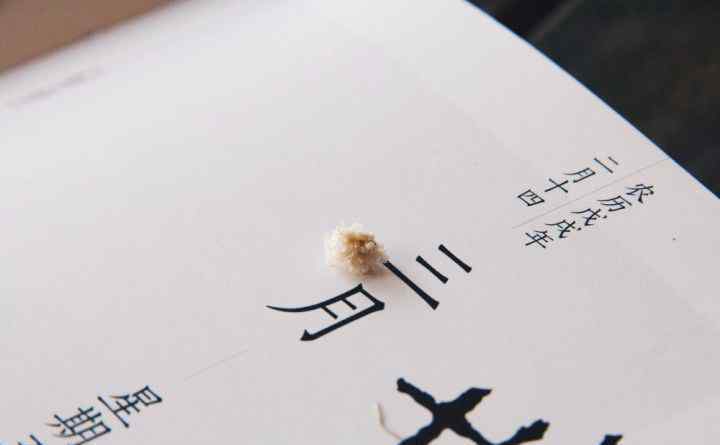 农历戊戌年
二月十四
三月
星期